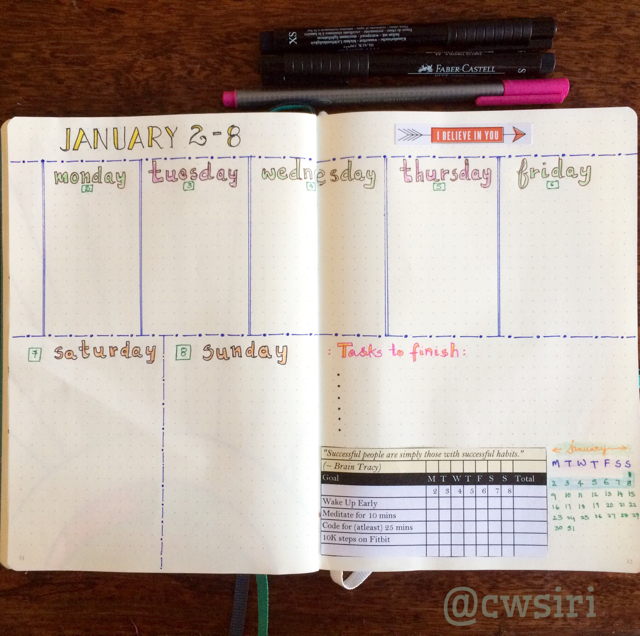 XS
FABER-CASTELL
S
JANUARY 2-8
I BELIEVE IN YOU
monday
2
tuesday
3
wednesday
4
thursday
5
friday
6
7 saturday
8 sunday
: Tasks to finish:
"Successful people are simply those with successful habits."
(~ Brain Tracy)
Goal M T W T F S S Total
2 3 4 5 6 7 8
Wake Up Early
Meditate for 10 mins
Code for (atleast) 25 mins
10K steps on Fitbit
January
M T W T F S S
1
2 3 4 5 6 7 8
9 10 11 12 13 14 15
16 17 18 19 20 21 22
23 24 25 26 27 28 29
30 31
@cwsiri